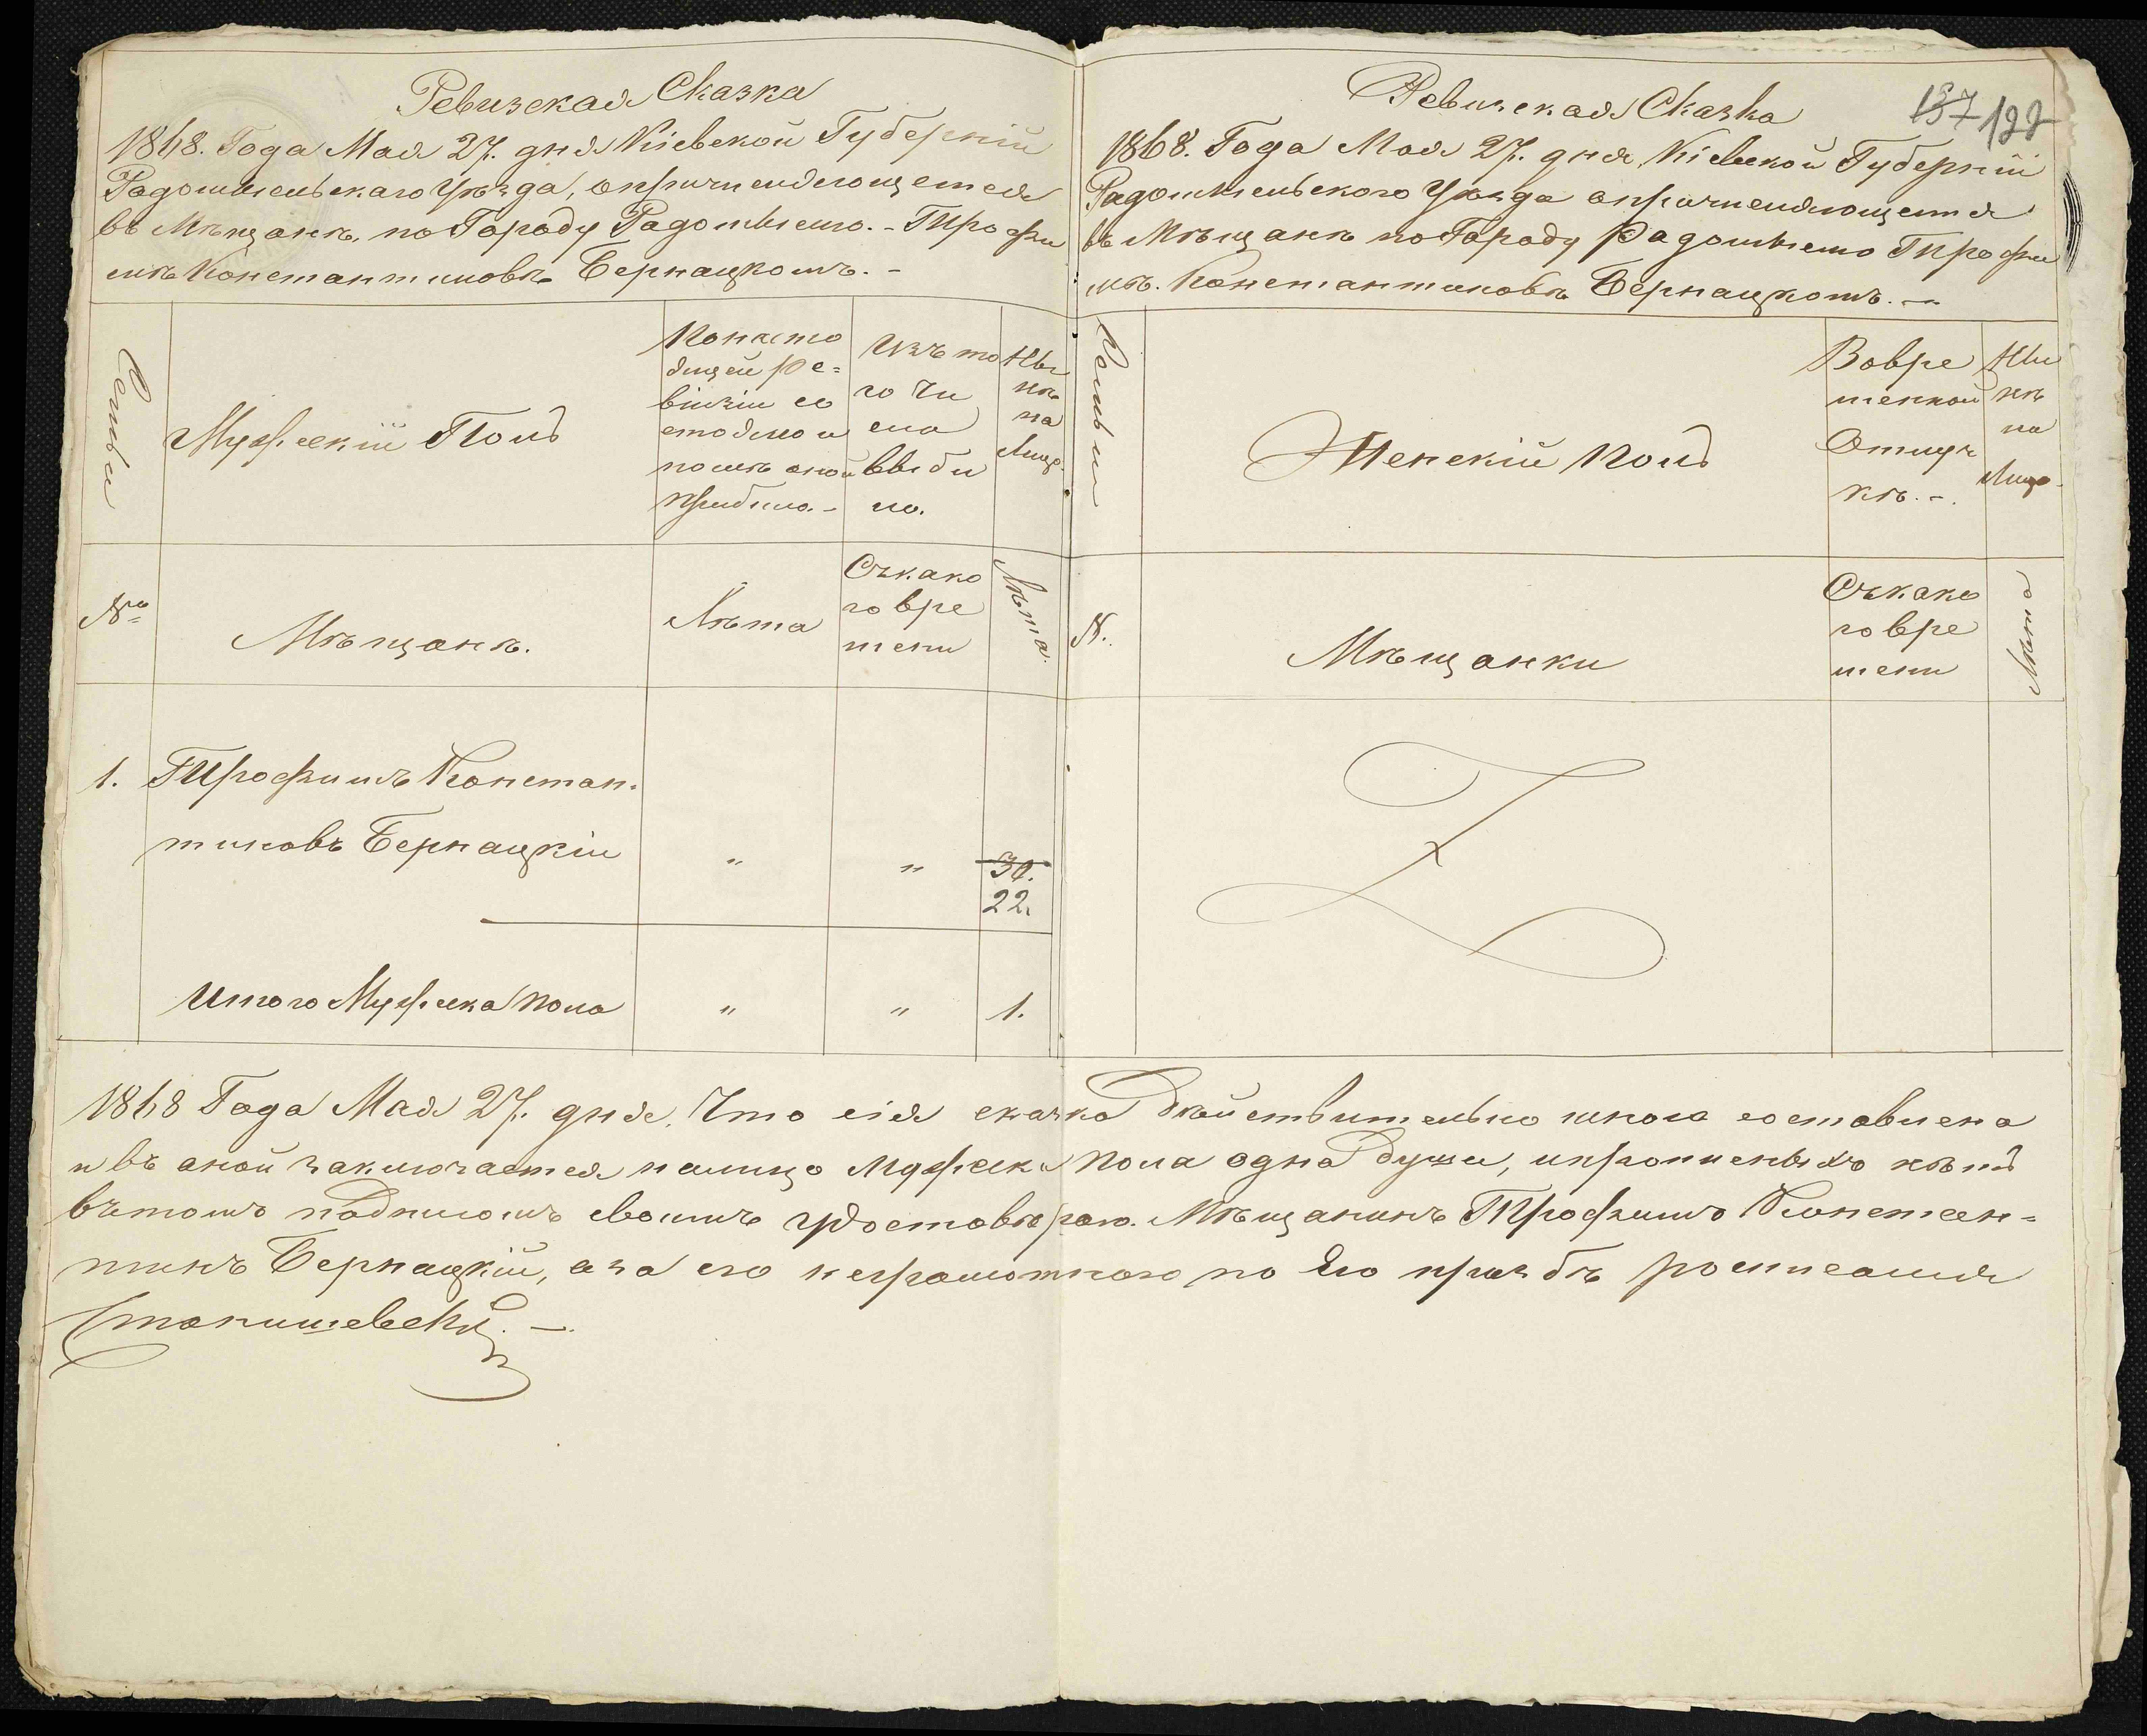 Ревизская Сказка
1868. Года Мая 27. дня Кіевской Губерніи
Радомысльскаго Уѣзда, о причисляющемся
въ Мѣщане, по Городу Радомыслю. - Трофи
мѣ Константиновѣ Бернацкомъ. -
Семьи
Мужескій Полъ
По насто
ящей ре=
візіи со
стояло и
послѣ оной
прибыло. -
Изъ то
го чи
сла
выбы
ло.
Ны
нѣ
на
Лицо.
№
Мѣщане.
Лѣта
Съ како
го вре
мени
Лѣта.
1. Трофимъ Констан.
тиновъ Бернацкій " " 30.
22.
Итого Мужеска пола " " 1.
Ревизская Сказка
137 122
1868. Года Мая 27. дня, Кіевской Губерніи
Радомысльского Уѣзда о причисляющемся
въ Мѣщане по Городу Радомыслю Трофи
мѣ. Константиновѣ Бернацкомъ. —
Семьи
Женскій полъ
Во вре
менной
Отлуч
кѣ. -.
Ны
нѣ
на
Лицо.
N.
Мѣщанки
Съ како
го вре
мени
Лѣта
1868 Года Мая 27. дня, Что сія сказка Действительно мною составлена
и въ оной заключается налицо Мужеска пола одна душа, и прописныхъ нѣтъ
въ томъ подписомъ своимъ удостовѣряю. Мѣщанинъ Трофимъ Констан=
тинъ Бернацкій, а за его неграмотного по Его прозбѣ росписался